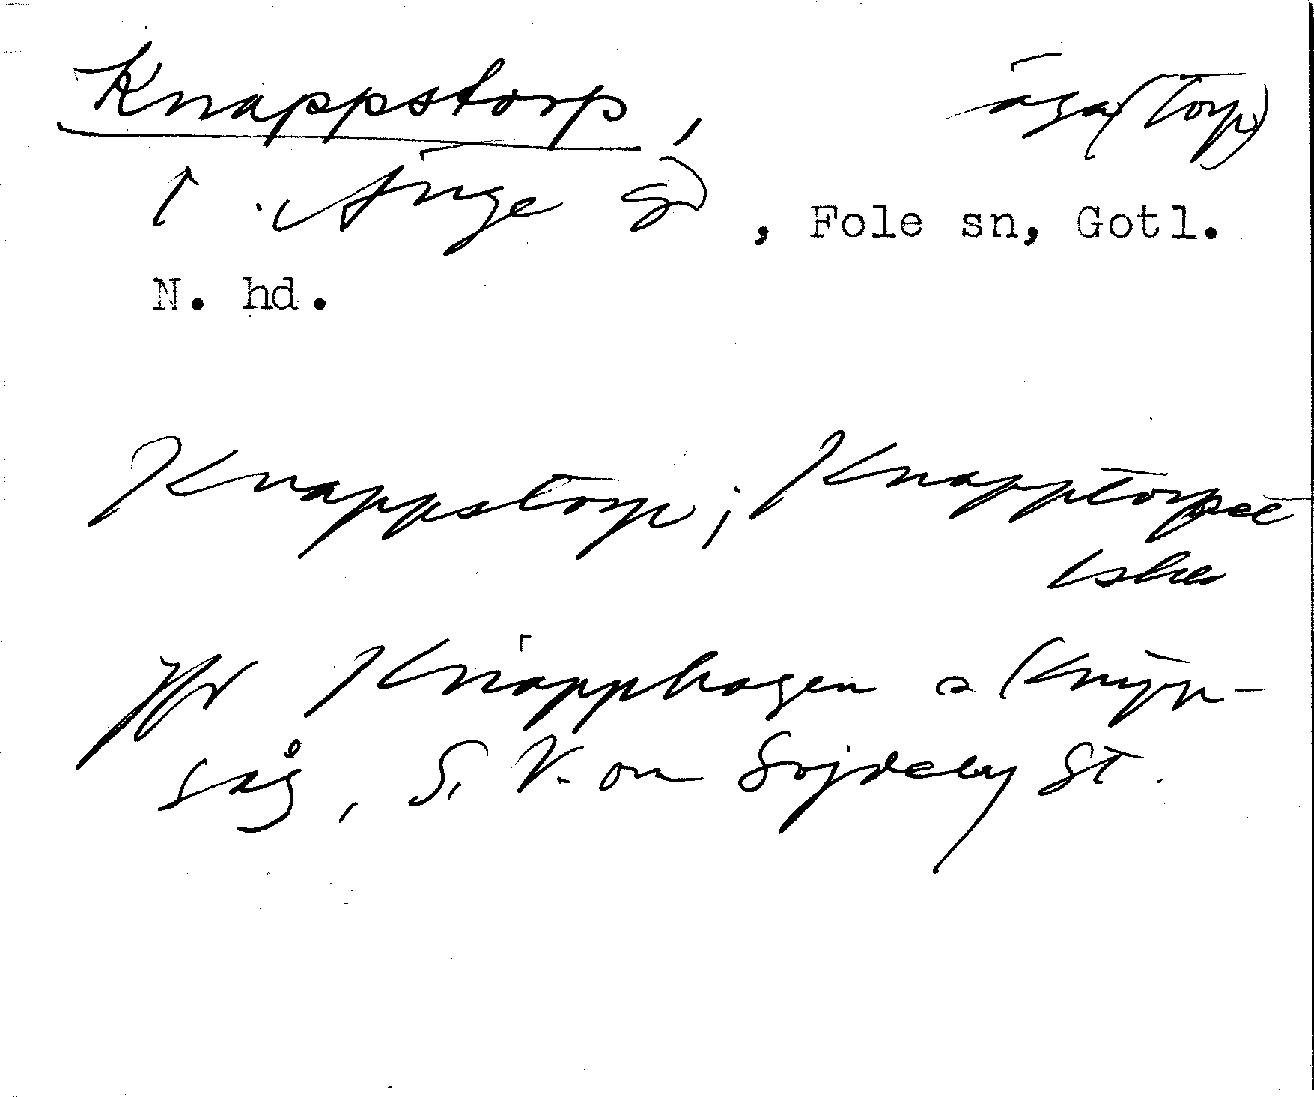 Knappstorp, åga (Torp)
i Änge S), Fole sn, Gotl.
N. hd.
Knappstorp; Knapptorpet
Jfr Knapphagen o Knipp-
såg, S. V. om Sojdeby St.